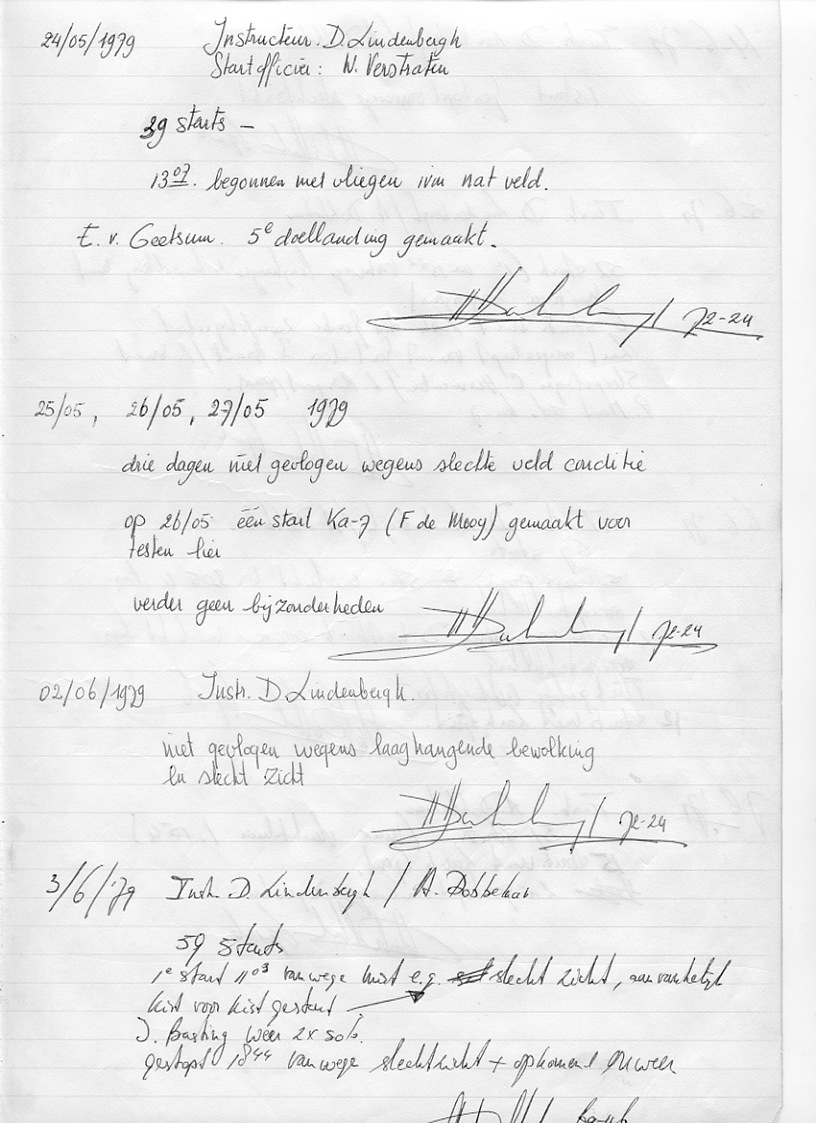 24/05/1979 Instructeur. D. Lindenbergh
Startofficier: W. Verstraten
39 starts –
13⁰⁷. begonnen met vliegen ivm nat veld.
E. v. Geelsum. 5ᵉ doellanding gemaakt.
72-24
25/05, 26/05, 27/05 1979
drie dagen niet gevlogen wegens slechte veld conditie
op 26/05 één start Ka-7 (F de Mooy) gemaakt voor
testen lier
verder geen bijzonderheden
72-24
02/06/1979 Instr. D Lindenbergh.
niet gevlogen wegens laaghangende bewolking
en slecht zicht
72-24
3/6/'79 Instr. D. Lindenbergh / A. Dobbelaar
59 Starts
1ᵉ start 11⁰³ vanwege mist e.g. slecht zicht, aanvankelijk
kist voor kist gestart
J. Basting weer 2x solo.
gestopt 18⁴⁴ vanwege slecht zicht + opkomend onweer